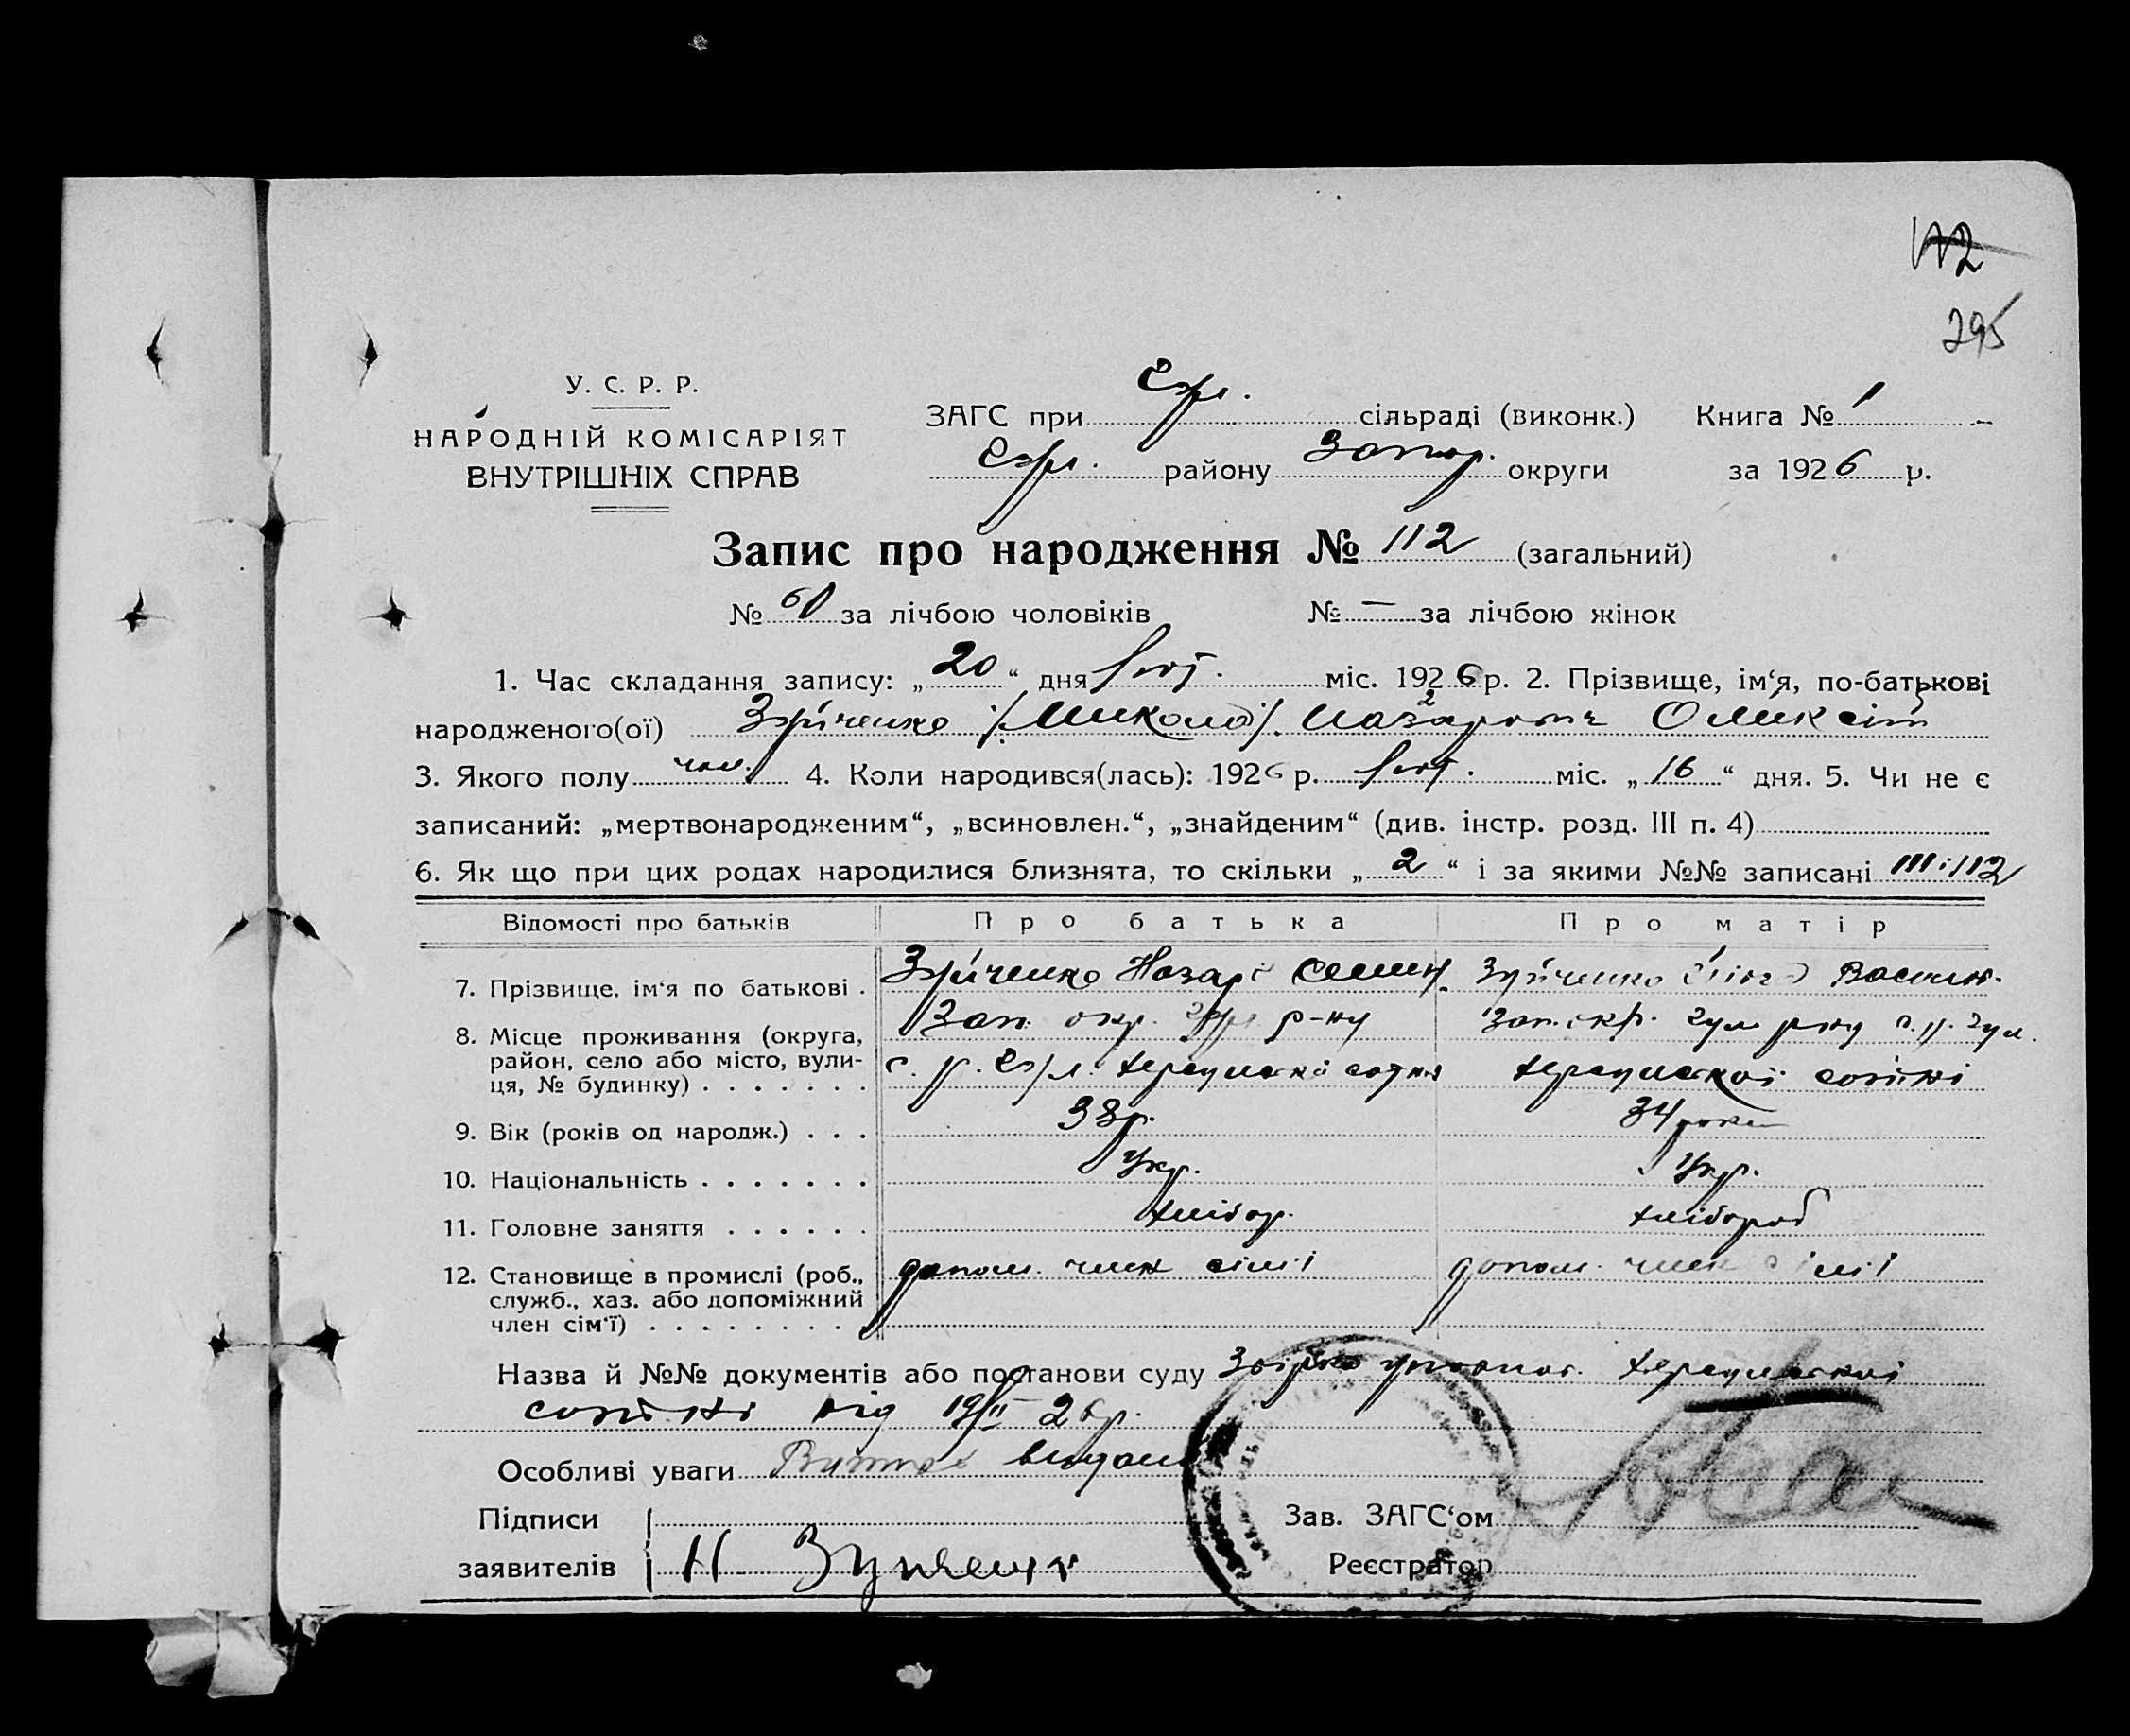 112
295
У. С. Р. Р.
НАРОДНІЙ КОМІСАРІЯТ
ВНУТРІШНІХ СПРАВ
ЗАГС при сільраді (виконк.) Книга № 1
району Запор. округи за 1926 р.
Запис про народження № 112 (загальний)
№ 60 за лічбою чоловіків № — за лічбою жінок
1. Час складання запису: „20“ дня Лют. міс. 1926 р. 2. Прізвище, ім‘я, по-батькові
народженого(ої) Микола Назарович
3. Якого полу чол. 4. Коли народився(лась): 1926 р. Лют. міс. „16“ дня. 5. Чи не є
записаний: „мертвонародженим“, „всиновлен.“, „знайденим“ (див. інстр. розд. III п. 4)
6. Як що при цих родах народилися близнята, то скільки „2“ і за якими №№ записані 111 і 112
Відомості про батьків Про батька Про матір
7. Прізвище, ім‘я по батькові . Назар Семен. Васил.
8. Місце проживання (округа, Зап. окр. р-ну Зап. окр. Гул р-ну с. р. Гул.
район, село або місто, вули- с. р. Гул.
ця, № будинку) . . . . . . .
9. Вік (років од народж.) . . . 38 р. 34 роки
10. Національність . . . . . . . Укр. Укр.
11. Головне заняття . . . . . . хлібор. хлібороб
12. Становище в промислі (роб., допом. член сім'ї допом. член сім'ї
служб., хаз. або допоміжний
член сім‘ї) . . . . . . . . .
Назва й №№ документів або постанови суду уповнов.
сотні від 19/II 26 р.
Особливі уваги Витяг видано
Підписи Зав. ЗАГС‘ом
заявителів Н Реєстратор